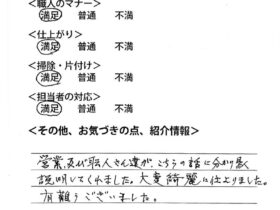 <職人のマナー>
満足 普通 不満
<仕上がり>
満足 普通 不満
<掃除・片付け>
満足 普通 不満
<担当者の対応>
満足 普通 不満
<その他、お気づきの点、紹介情報>
営業及び職人さん達が、こちらの話に分かり易く
説明してくれました。大変綺麗に仕上りました。
有難うございました。